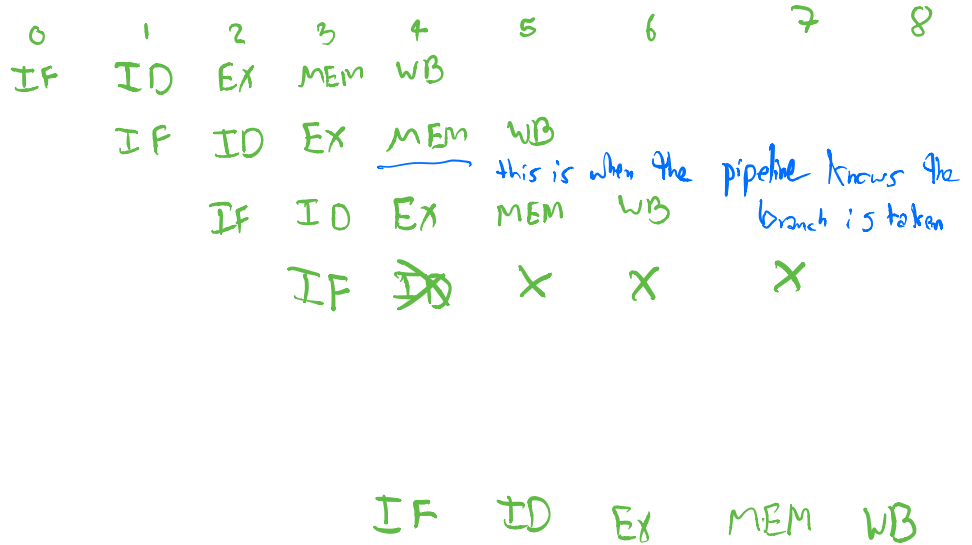 0 1 2 3 4 5 6 7 8
IF ID EX MEM WB
IF ID EX MEM WB
this is when the pipeline knows the
branch is taken
IF ID EX MEM WB
IF ID X X X
IF ID EX MEM WB